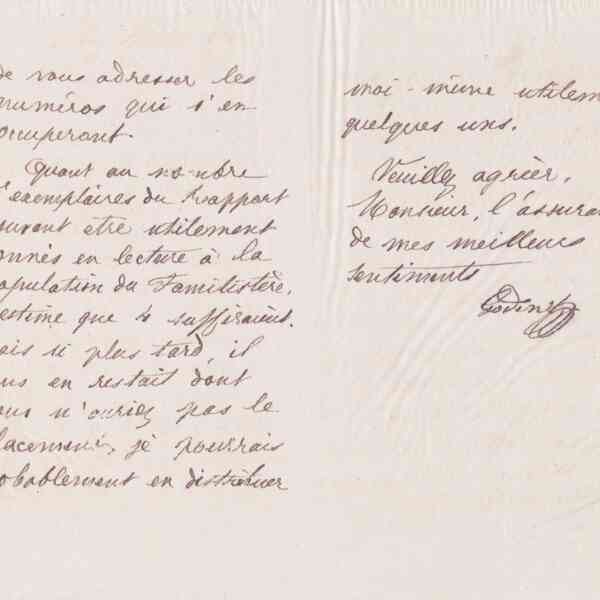 de vous adresser les
numéros qui s'en
occuperont.
Quant au nombre
d'exemplaires du Rapport
pouvant être utilement
donnés en lecture à la
population du Familistère,
j'estime que 4 suffiraient.
Mais si plus tard, il
vous en restait dont
vous n'auriez pas le
placement, je pourrais
probablement en distribuer
moi-même utilem
quelques uns.
Veuillez agréer,
Monsieur, l'assura
de mes meilleurs
sentiments
Godin